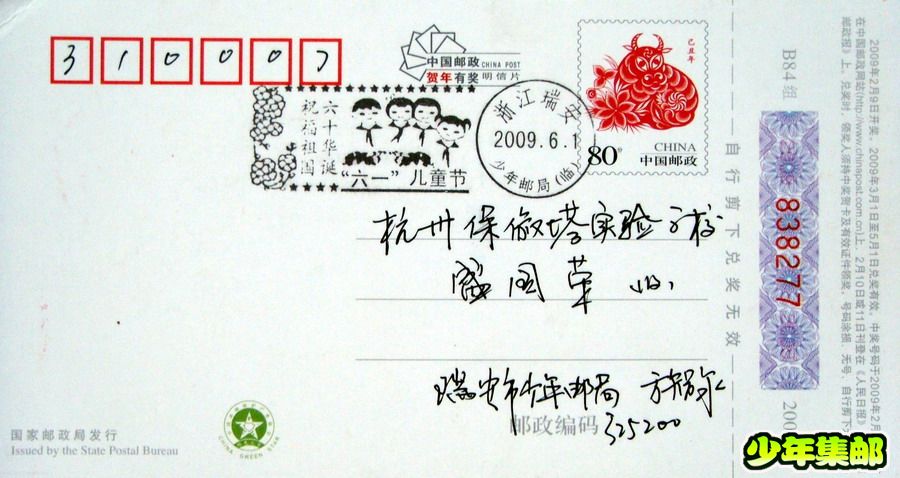 310007
中国邮政 CHINA POST
贺年有奖明信片
己丑年
80分 CHINA
中国邮政
六十华诞
祝福祖国
"六一"儿童节
浙江瑞安
2009.6.1
少年邮局(临)
杭州保俶塔实验学校
盛国荣 收
瑞安市少年邮局
邮政编码 325200
国家邮政局发行
Issued by the State Postal Bureau
CHINA GREEN STAR
自行剪下兑奖无效
B84组
838277
200
2009年2月9日开奖。2009年3月1日至5月1日兑奖有效。中奖号码于2009年2月
在中国邮政网站(http://www.chinapost.com.cn)上，2月10日或11日刊登在《人民日报》
邮政报》上。兑奖时，领奖人须持中奖贺卡及有效证件领奖，号码涂损、无号、自行剪下
少年集邮